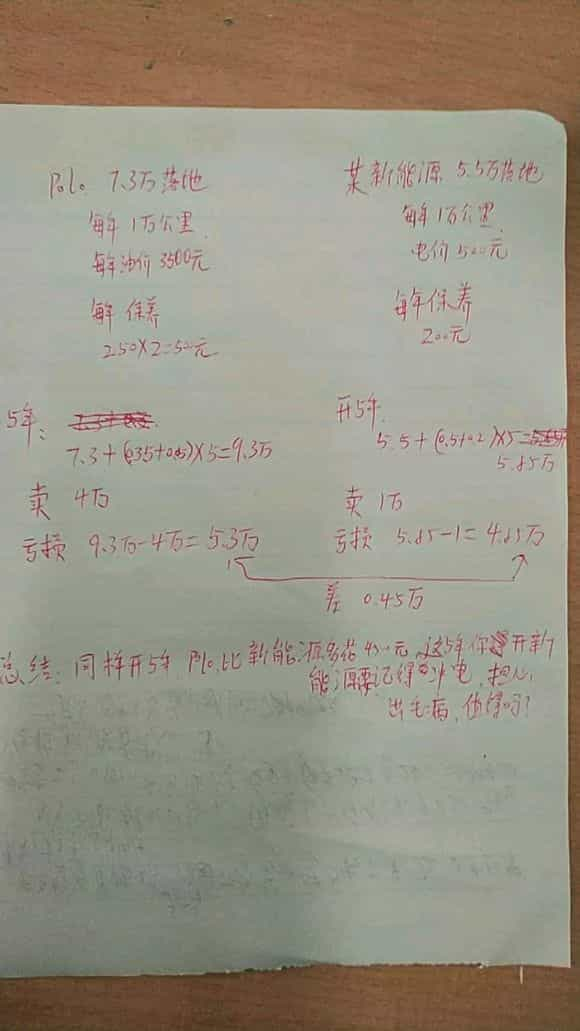 Polo 7.3万落地
每年1万公里
每年油价3500元
每年保养
250×2=500元
5年:
7.3+(0.35+0.05)×5=9.3万
卖 4万
亏损 9.3万-4万=5.3万
某新能源 5.5万落地
每年1万公里
电价500元
每年保养
200元
开5年
5.5+(0.5+0.2)×5=
5.85万
卖 1万
亏损 5.85-1=4.85万
差 0.45万
总结: 同样开5年 Polo比新能源多花4500元,这5年你开新
能源要记得冲电,担心
出毛病,值得吗?